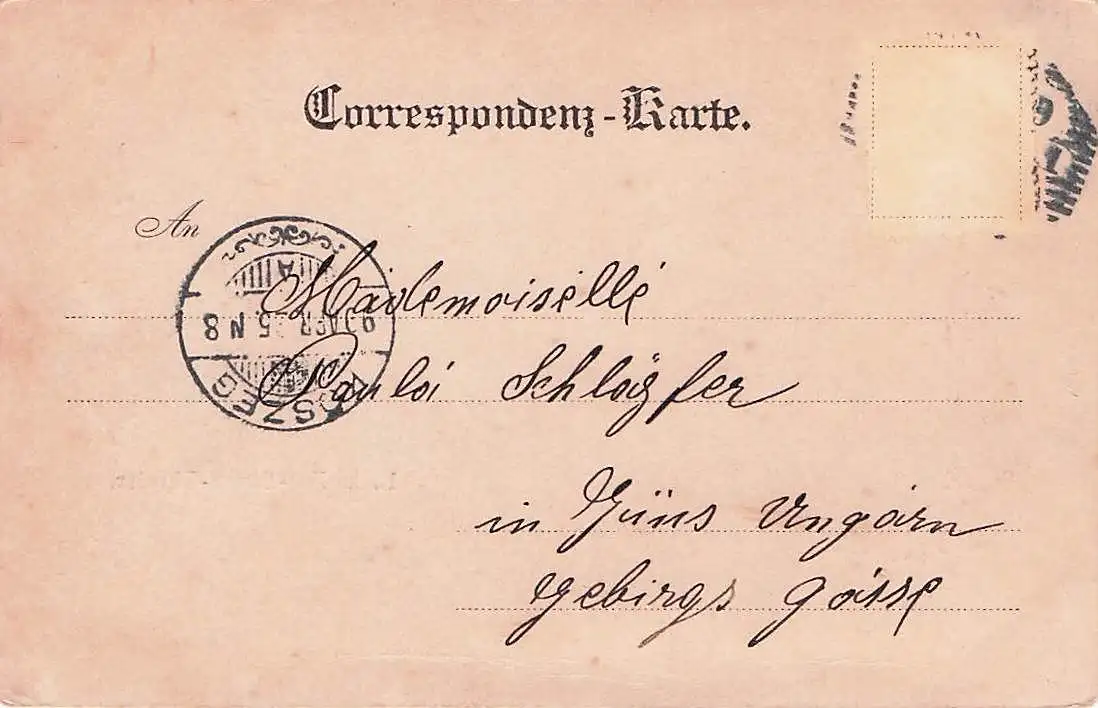 Correspondenz-Karte.
An
Mademoiselle
Paula Schläg fer
in Güns Ungarn
Gebirgs gasse
KŐSZEG